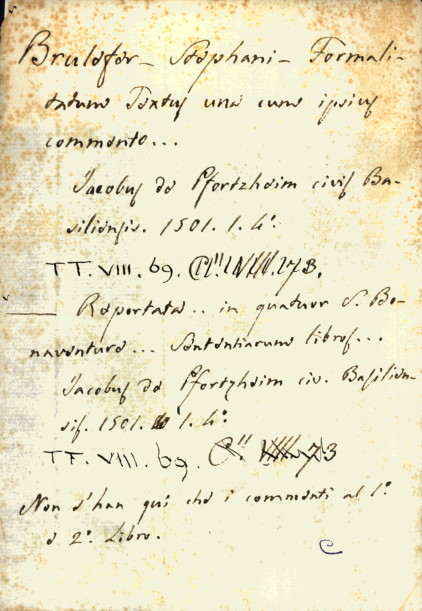 Brulefer - Stephani - Formali-
tatum Textus una cum ipsius
commento...
Jacobus de Pfortzheim civis Ba-
siliensis. 1501. 1. 4º.
TT. VIII. 69. 73.
— Reportata.. in quatuor S. Bo-
naventure... Sententiarum libros...
Jacobus de Pfortzheim civ. Basilien-
sis. 1501. 1. 4º
TT. VIII. 69. 73
Non s'han qui che i commenti al 1º.
e 2º. Libro.
C